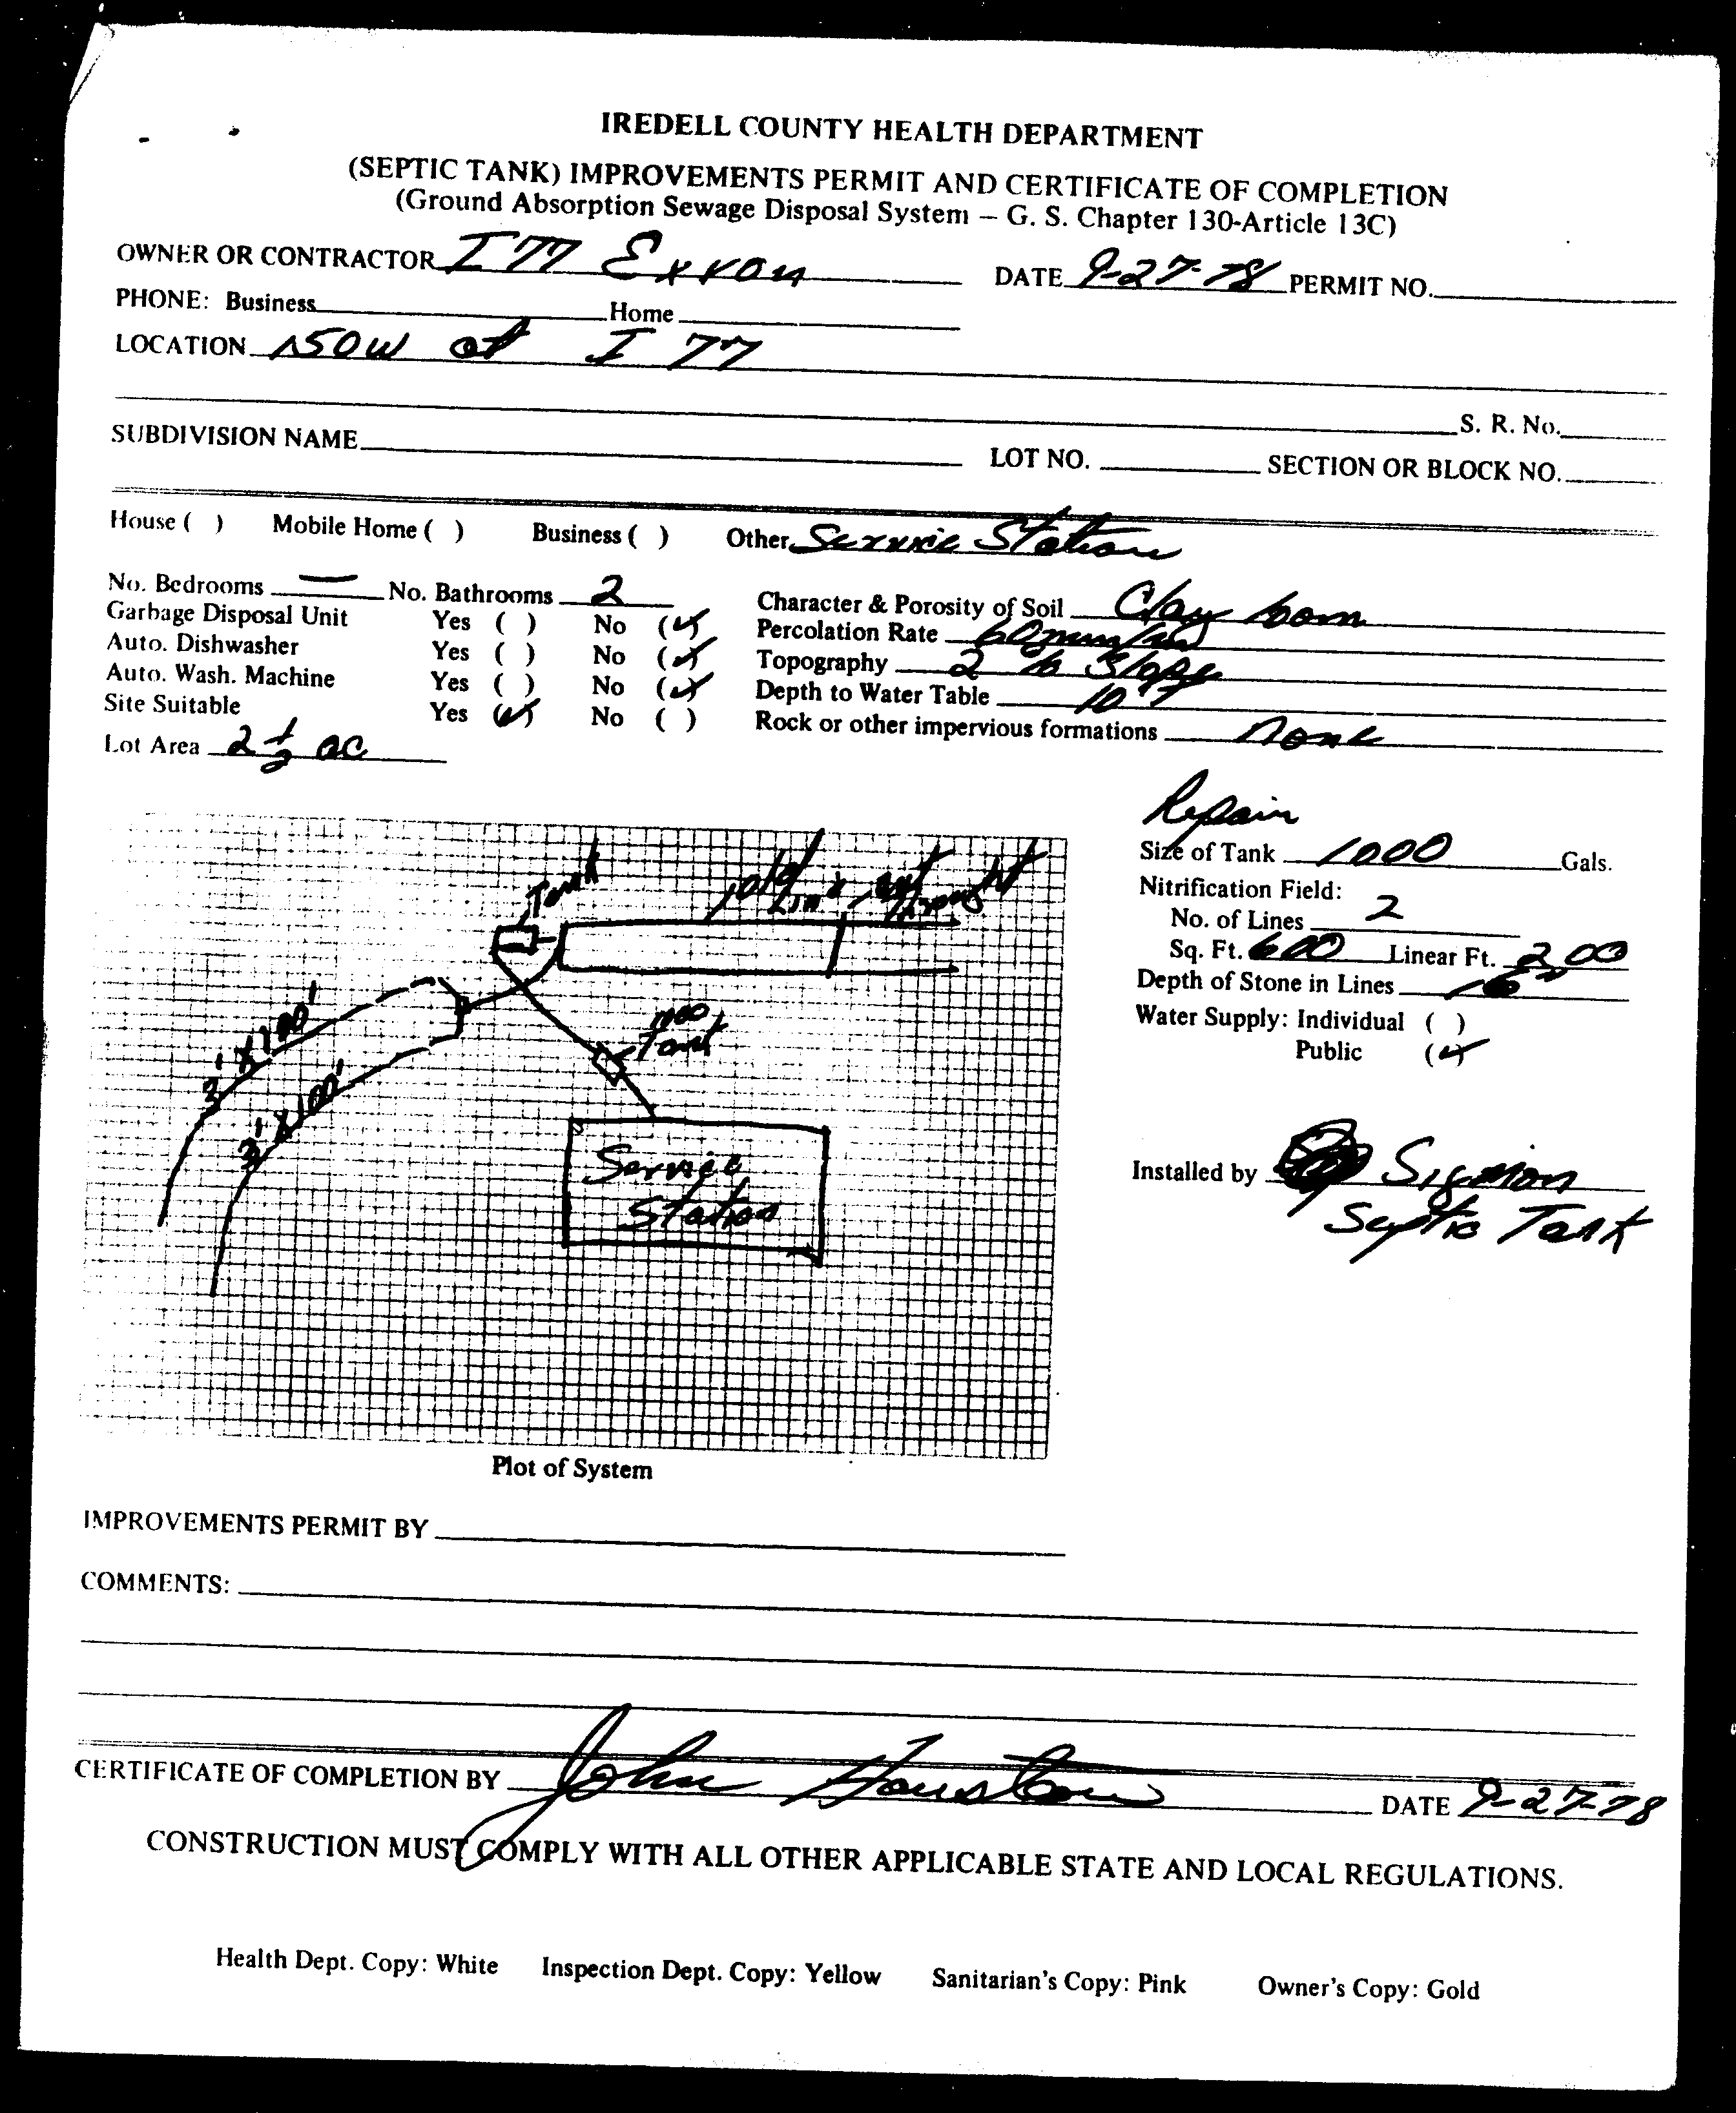 IREDELL COUNTY HEALTH DEPARTMENT
(SEPTIC TANK) IMPROVEMENTS PERMIT AND CERTIFICATE OF COMPLETION
(Ground Absorption Sewage Disposal System – G. S. Chapter 130-Article 13C)
OWNER OR CONTRACTOR I 77 Exxon DATE 9-27-78 PERMIT NO.
PHONE: Business Home
LOCATION 150W at I 77
S. R. No.
SUBDIVISION NAME LOT NO. SECTION OR BLOCK NO.
House ( ) Mobile Home ( ) Business ( ) Other Service Station
No. Bedrooms — No. Bathrooms 2 Character & Porosity of Soil Clay loam
Garbage Disposal Unit Yes ( ) No (✓) Percolation Rate 60 min/in
Auto. Dishwasher Yes ( ) No (✓) Topography 2 % Slope
Auto. Wash. Machine Yes ( ) No (✓) Depth to Water Table 10 +
Site Suitable Yes (✓) No ( ) Rock or other impervious formations none
Lot Area 2 1/2 ac
Repair
Size of Tank 1000 Gals.
Nitrification Field:
No. of Lines 2
Sq. Ft. 600 Linear Ft. 200
Depth of Stone in Lines
Water Supply: Individual ( )
Public (✓)
Installed by Sigmon
Septic Tank
Tank
old
Line
3' X 100'
3' X 100'
1000
Tank
Service
Station
Plot of System
IMPROVEMENTS PERMIT BY
COMMENTS:
CERTIFICATE OF COMPLETION BY John Houston DATE 9-27-78
CONSTRUCTION MUST COMPLY WITH ALL OTHER APPLICABLE STATE AND LOCAL REGULATIONS.
Health Dept. Copy: White Inspection Dept. Copy: Yellow Sanitarian's Copy: Pink Owner's Copy: Gold